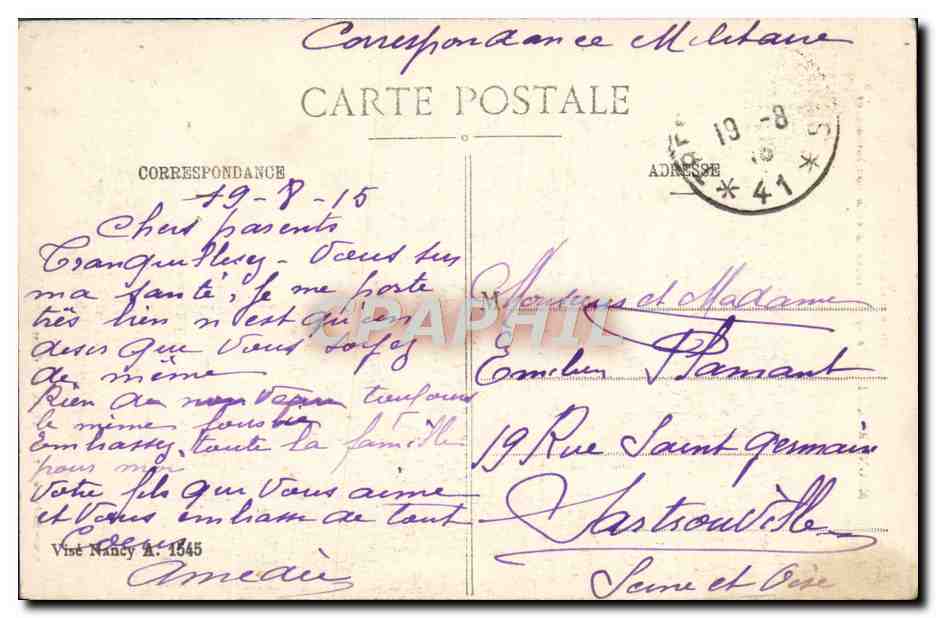 Correspondance Militaire
CARTE POSTALE
CORRESPONDANCE
ADRESSE
19 -8
15
* 41 *
19-8-15
Chers parents
Tranquillesez-Vous sur
ma santé, je me porte
très bien n'est qu'un
desir que vous soyez
de même
Rien de nouveau toujours
le même fourbie
Embrassez toute la famille
pour moi
Votre fils qui vous aime
et vous embrasse de tout
Coeur
Visé Nancy A. 1545
Amedée
CPAPHIL
M Monsieurs et Madame
Emilien Flamant
19 Rue Saint germain
Sartrouville
Seine et Oise